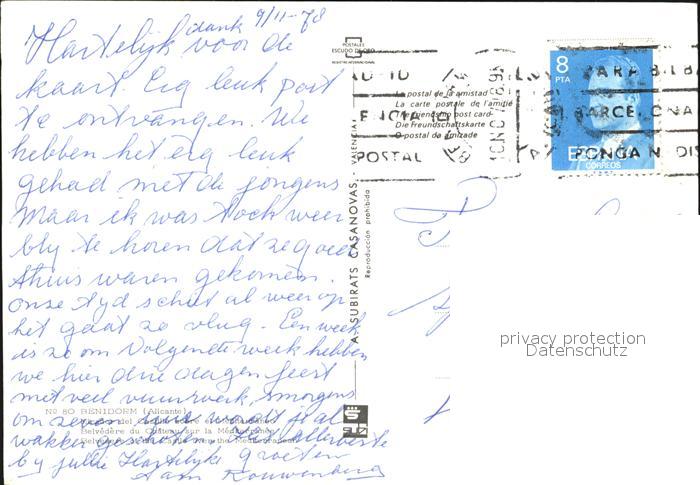 9/11-78
Hartelijk dank voor de
kaart. Erg leuk post
te ontvangen. We
hebben het erg leuk
gehad met de jongens
Maar ik was toch weer
bly te horen dat ze goed
thuis waren gekomen.
onze tyd schiet al weer op
het gaat zo vlug. Een week
is zo om Volgende week hebben
we hier drie dagen feest
met veel vuurwerk, smorgens
om zeven uur wordt je al
wakker geschoten. allerbeste
by jullie Hartelyke groeten
Nº 80 BENIDORM (Alicante)
Belvédère du Château sur la Méditerranée
POSTALES
ESCUDO DE ORO
REGISTRO INTERNACIONAL
A. SUBIRATS CASANOVAS - VALENCIA
Reproducción prohibida
La postal de la amistad
La carte postale de l'amitié
The friendship post card
Die Freundschaftskarte
O postal de amizade
POSTAL
PARA
BARCELONA
PONGA
8
PTA
CORREOS
privacy protection
Datenschutz